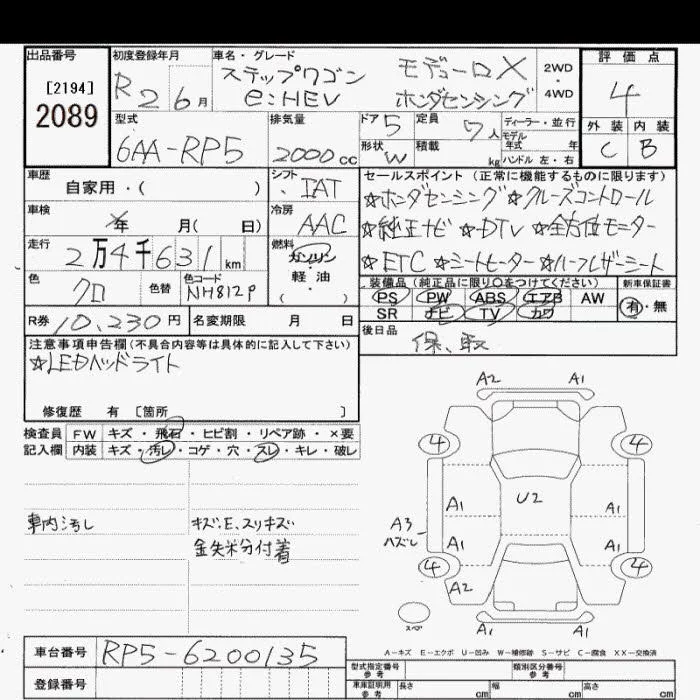 出品番号 初度登録年月 車名・グレード 評価点
[2194]
2089
R2 6月
ステップワゴン モデューロX 2WD
e:HEV ホンダセンシング 4WD
4
外装 内装
C B
型式 排気量 ドア 5 定員 7人 ディーラー・並行
6AA-RP5 2000cc 形状 W 積載 kg モデル年式 年
ハンドル 左・右
車歴 シフト セールスポイント (正常に機能するものに限ります)
自家用・( ) IAT
☆ホンダセンシング ☆クルーズコントロール
車検 年 月( 日) 冷房 AAC
☆純正ナビ ☆DTV ☆全方位モニター
走行 2万4千631km 燃料 ガソリン・軽油 ( )
☆ETC ☆シートヒーター ☆ハーフレザーシート
色 クロ 色替 色コード NH812P
装備品 (純正品に限り○をつけてください) 新車保証書
PS PW ABS エアB AW 有・無
SR ナビ TV カワ
R券 10,230円 名変期限 月 日 後日品
保、取
注意事項申告欄(不具合内容等は具体的に記入して下さい)
☆LEDヘッドライト
修復歴 有 [箇所 ]
検査員 FW キズ・飛石・ヒビ割・リペア跡・×要
記入欄 内装 キズ・汚レ・コゲ・穴・スレ・キレ・破レ
A2 A1
4 4
車内汚し キズ、E、スリキズ
金失粉分付着
A1 U2 A1
A3 ハズレ A1 A1
4 4
A2
スペア A1 A1
A-キズ E-エクボ U-凹み W-補修跡 S-サビ C-腐食 XX-交換済
車台番号 RP5-6200135
型式指定番号 参考 類別区分番号 参考
登録番号
車庫証明用 参考 長さ cm 幅 cm 高さ cm